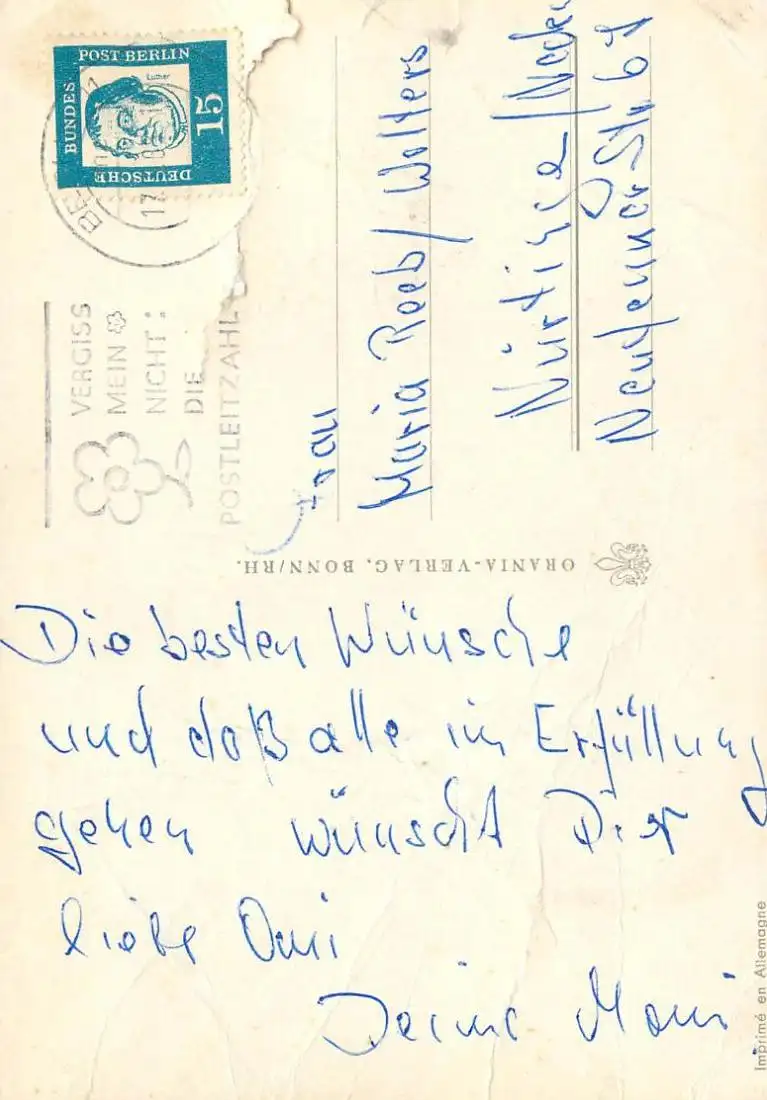 Die besten Wünsche
und daß alle in Erfüllung
gehen wünscht Dir
liebe Omi
Deine Moni
Frau
Maria Reeb / Wolfers
Nürtinge /
Str. 67
DEUTSCHE BUNDES POST BERLIN
Luther
15
17
VERGISS
MEIN
NICHT:
DIE
POSTLEITZAHL
ORANIA-VERLAG, BONN/RH.
Imprimé en Allemagne